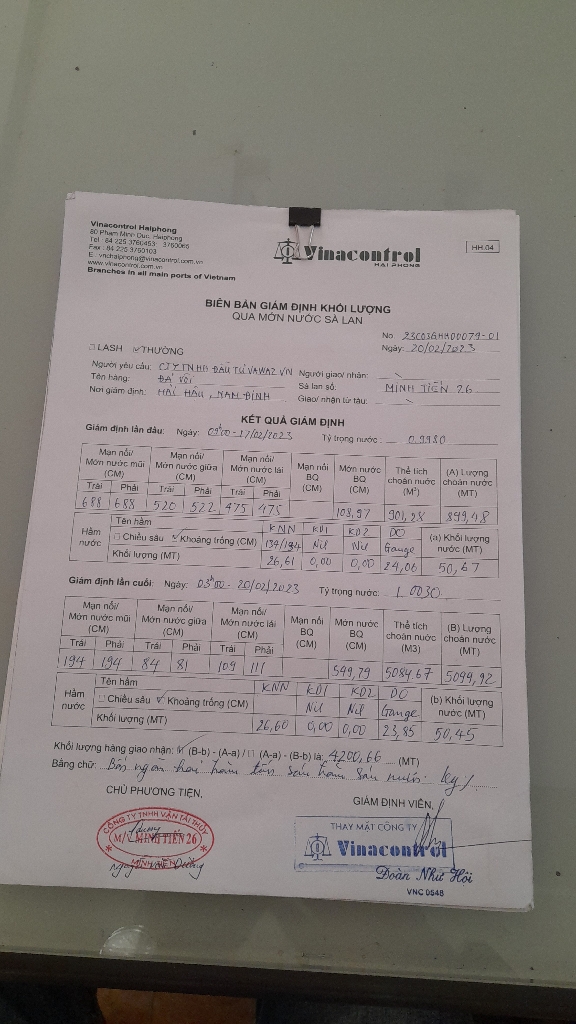 Vinacontrol Haiphong
80 Pham Minh Duc, Haiphong
Tel : 84 225 3760453 3760065
Fax : 84 225 3760103
E : vnchaiphong@vinacontrol.com.vn
www.vinacontrol.com.vn
Branches in all main ports of Vietnam
Vinacontrol
HAI PHONG
HH.04
BIÊN BẢN GIÁM ĐỊNH KHỐI LƯỢNG
QUA MỚN NƯỚC SÀ LAN
No 23C03GHH00079-01
Ngày: 20/02/2023
LASH THƯỜNG
Người yêu cầu: CTY TNHH ĐẦU TƯ VAWAZ VN Người giao/ nhận:
Tên hàng: ĐÁ VÔI Sà lan số: MINH TIẾN 26
Nơi giám định: HẢI HẬU, NAM ĐỊNH Giao/ nhận từ tàu:
KẾT QUẢ GIÁM ĐỊNH
Giám định lần đầu: Ngày: 09h00 - 17/02/2023 Tỷ trọng nước : 0.9980
Mạn nổi/ Mớn nước mũi (CM) Mạn nổi/ Mớn nước giữa (CM) Mạn nổi/ Mớn nước lái (CM) Mạn nổi BQ (CM) Mớn nước BQ (CM) Thể tích choán nước (M³) (A) Lượng choán nước (MT)
Trái Phải Trái Phải Trái Phải
688 688 520 522 475 475 108,97 901,28 899,48
Hầm nước Tên hầm KNN KĐ1 KĐ2 DO (a) Khối lượng nước (MT)
Chiều sâu Khoảng trống (CM) 134/134 Nil Nil Gauge
Khối lượng (MT) 26,61 0,00 0,00 24,06 50,67
Giám định lần cuối: Ngày: 03h00 - 20/02/2023 Tỷ trọng nước: 1.0030
Mạn nổi/ Mớn nước mũi (CM) Mạn nổi/ Mớn nước giữa (CM) Mạn nổi/ Mớn nước lái (CM) Mạn nổi BQ (CM) Mớn nước BQ (CM) Thể tích choán nước (M3) (B) Lượng choán nước (MT)
Trái Phải Trái Phải Trái Phải
194 194 84 81 109 111 549,79 5084,67 5099,92
Hầm nước Tên hầm KNN KĐ1 KĐ2 DO (b) Khối lượng nước (MT)
Chiều sâu Khoảng trống (CM) Nil Nil Gauge
Khối lượng (MT) 26,60 0,00 0,00 23,85 50,45
Khối lượng hàng giao nhận: (B-b) - (A-a) / (A-a) - (B-b) là: 4200,66 (MT)
Bằng chữ: Bốn ngàn hai trăm tấn sáu trăm sáu mươi kg
CHỦ PHƯƠNG TIỆN, GIÁM ĐỊNH VIÊN,
CÔNG TY TNHH VẬN TẢI THỦY
M/V MINH TIẾN 26
THAY MẶT CÔNG TY
Vinacontrol
Đoàn Như Hội
VNC 0548